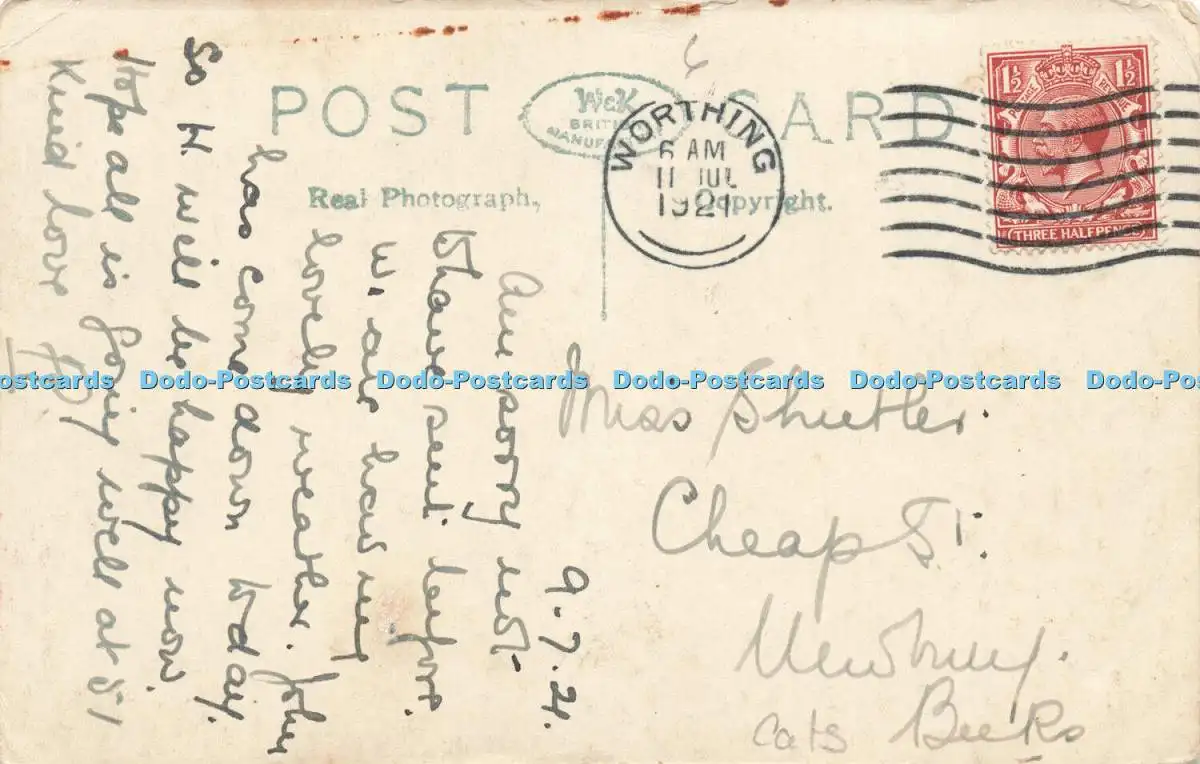 POST CARD
W&K
BRITISH
MANUFACTURE
Real Photograph, Copyright.
WORTHING
6 AM
11 JUL
1921
1½ 1½
POSTAGE REVENUE
THREE HALFPENCE
9.7.21.
Am sorry not
to have sent before.
We are having
lovely weather. John
has come down today.
So H. will be happy now.
Hope all is going well at 51
Kind love
Miss Shuttler.
Cheap St.
Newbury.
Berks
cats
Dodo-Postcards Dodo-Postcards Dodo-Postcards Dodo-Postcards Dodo-Postcards Dodo-Postcards